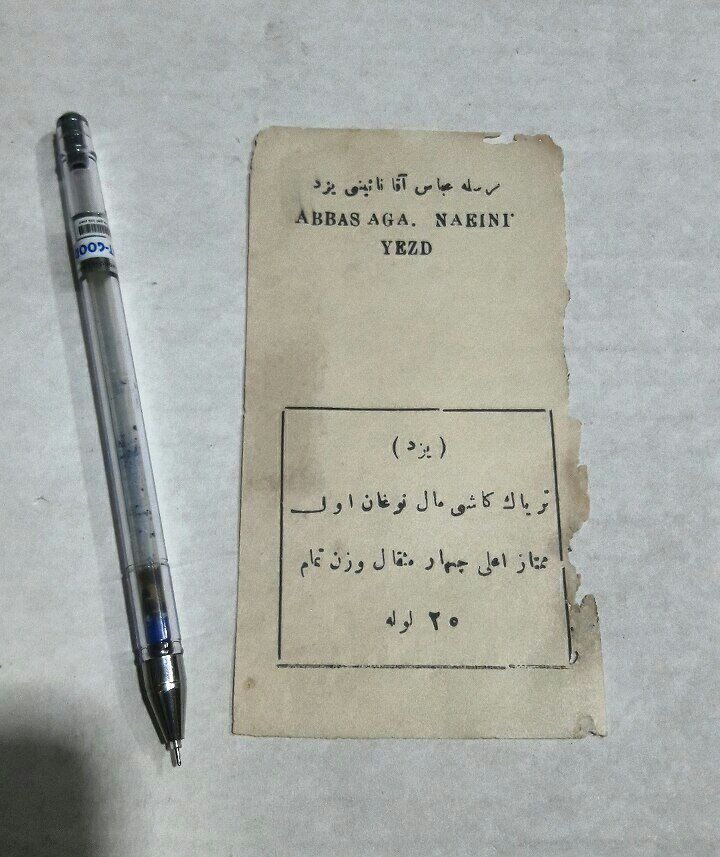 مرسله عباس آقا نائینی یزد
ABBAS AGA. NAEINI
YEZD
( یزد )
تریاك كاشی مال نوغان اول
ممتاز اعلی چهار مثقال وزن تمام
۲۵ لوله